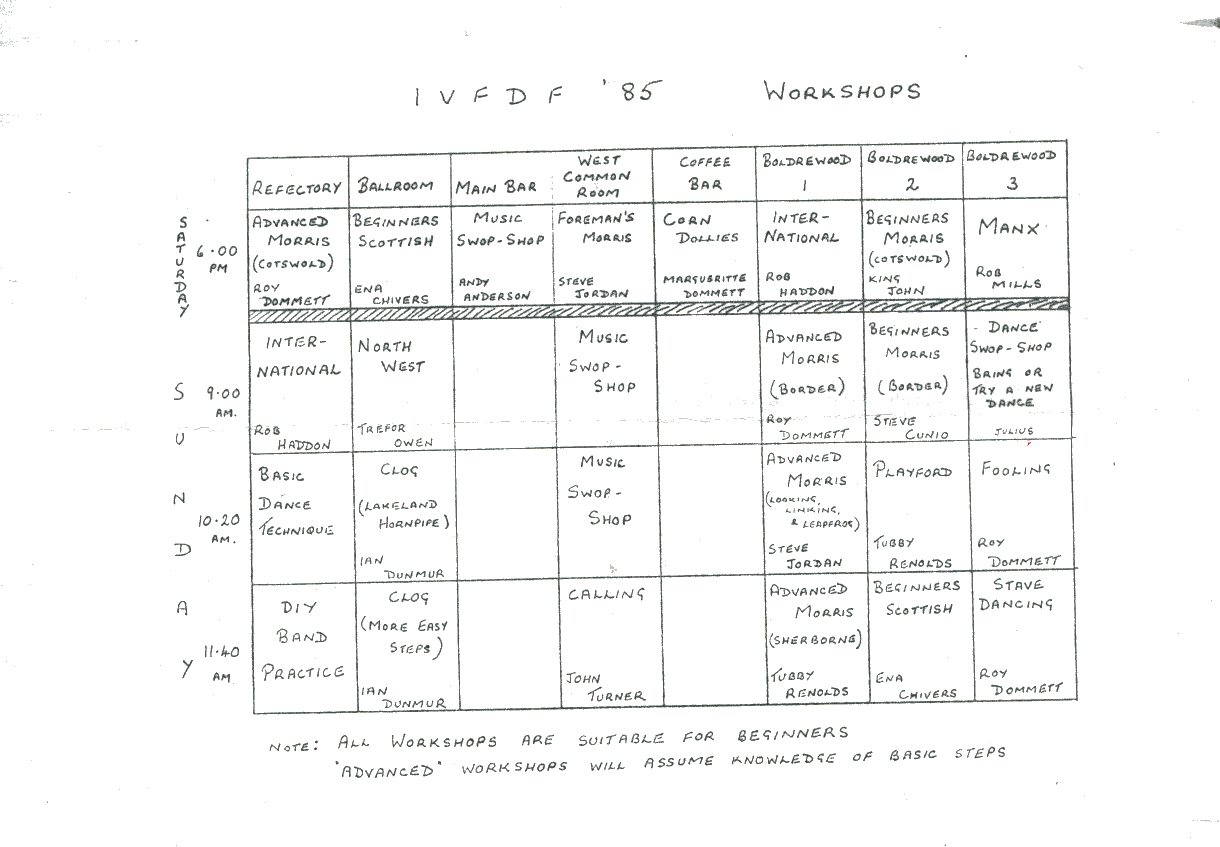 IVFDF '85 WORKSHOPS
REFECTORY
BALLROOM
MAIN BAR
WEST
COMMON
ROOM
COFFEE
BAR
BOLDREWOOD
1
BOLDREWOOD
2
BOLDREWOOD
3
SATURDAY
6.00
PM
ADVANCED
MORRIS
(COTSWOLD)
ROY
DOMMETT
BEGINNERS
SCOTTISH
ENA
CHIVERS
MUSIC
SWOP-SHOP
ANDY
ANDERSON
FOREMAN'S
MORRIS
STEVE
JORDAN
CORN
DOLLIES
MARGUERITTE
DOMMETT
INTER-
NATIONAL
ROB
HADDON
BEGINNERS
MORRIS
(COTSWOLD)
KING
JOHN
MANX
ROB
MILLS
SUNDAY
9.00
AM.
INTER-
NATIONAL
ROB
HADDON
NORTH
WEST
TREFOR
OWEN
MUSIC
SWOP-
SHOP
ADVANCED
MORRIS
(BORDER)
ROY
DOMMETT
BEGINNERS
MORRIS
(BORDER)
STEVE
CUNIO
DANCE
SWOP-SHOP
BRING OR
TRY A NEW
DANCE
JULIUS
10.20
AM.
BASIC
DANCE
TECHNIQUE
CLOG
(LAKELAND
HORNPIPE)
IAN
DUNMUR
MUSIC
SWOP-
SHOP
ADVANCED
MORRIS
(LOOKING,
LINKING,
& LEAPFROG)
STEVE
JORDAN
PLAYFORD
TUBBY
RENOLDS
FOOLING
ROY
DOMMETT
11.40
AM
DIY
BAND
PRACTICE
CLOG
(MORE EASY
STEPS)
IAN
DUNMUR
CALLING
JOHN
TURNER
ADVANCED
MORRIS
(SHERBORNE)
TUBBY
RENOLDS
BEGINNERS
SCOTTISH
ENA
CHIVERS
STAVE
DANCING
ROY
DOMMETT
NOTE: ALL WORKSHOPS ARE SUITABLE FOR BEGINNERS
'ADVANCED' WORKSHOPS WILL ASSUME KNOWLEDGE OF BASIC STEPS